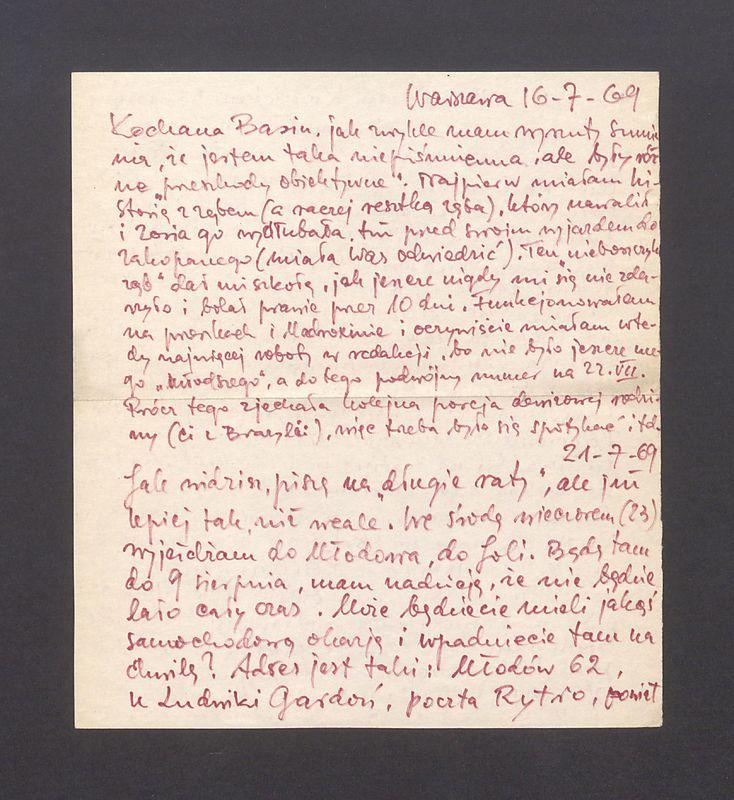 Warszawa 16-7-69
Kochana Basiu, jak zwykle mam wyrzuty sumie-
nia, że jestem taka niepiśmienna, ale były róż-
ne „przeszkody obiektywne". Najpierw miałam hi-
storię z zębem (a raczej resztką zęba), który nawalił
i Zosia go wydłubała, tuż przed swoim wyjazdem do
Zakopanego (miała Was odwiedzić). Ten „nieboszczyk
ząb" dał mi szkołę, jak jeszcze nigdy mi się nie zda-
rzyło i bolał prawie przez 10 dni. Funkcjonowałam
na proszkach i Madroxinie i oczywiście miałam wte-
dy najwięcej roboty w redakcji, bo nie było jeszcze me-
go „młodszego", a do tego podwójny numer na 22.VII.
Prócz tego zjechała kolejna porcja dewizowej rodzi-
ny (ci z Brazylii), więc trzeba było się spotykać itd.
21-7-69
Jak widzisz, piszę na „długie raty", ale już
lepiej tak, niż wcale. We środę wieczorem (23)
wyjeżdżam do Młodowa, do Joli. Będę tam
do 9 sierpnia, mam nadzieję, że nie będzie
lało cały czas. Może będziecie mieli jakąś
samochodową okazję i wpadniecie tam na
chwilę? Adres jest taki: Młodów 62,
u Ludwiki Gardoń, poczta Rytro, powiat